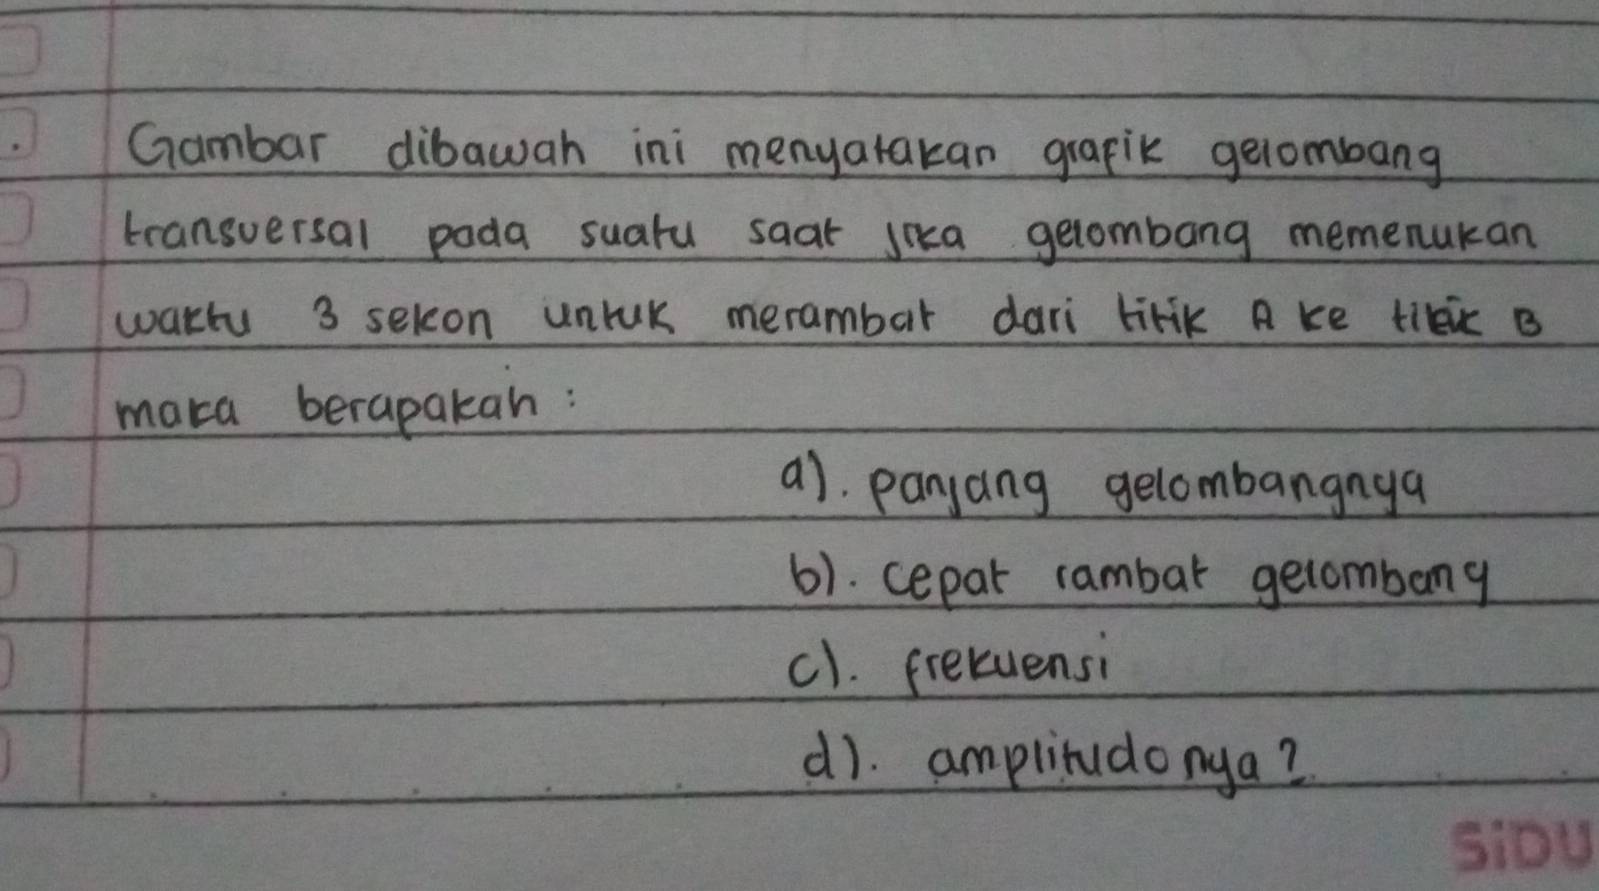 Gambar dibawah ini menyatakan grafik gelombang
transversal pada suatu saat jika gelombang memerlukan
waktu 3 sekon untuk merambat dari titik A ke titik B
maka berapakah :
a). panjang gelombangnya
b). cepat rambat gelombang
c). frekuensi
d). amplitudonya?
SiDU